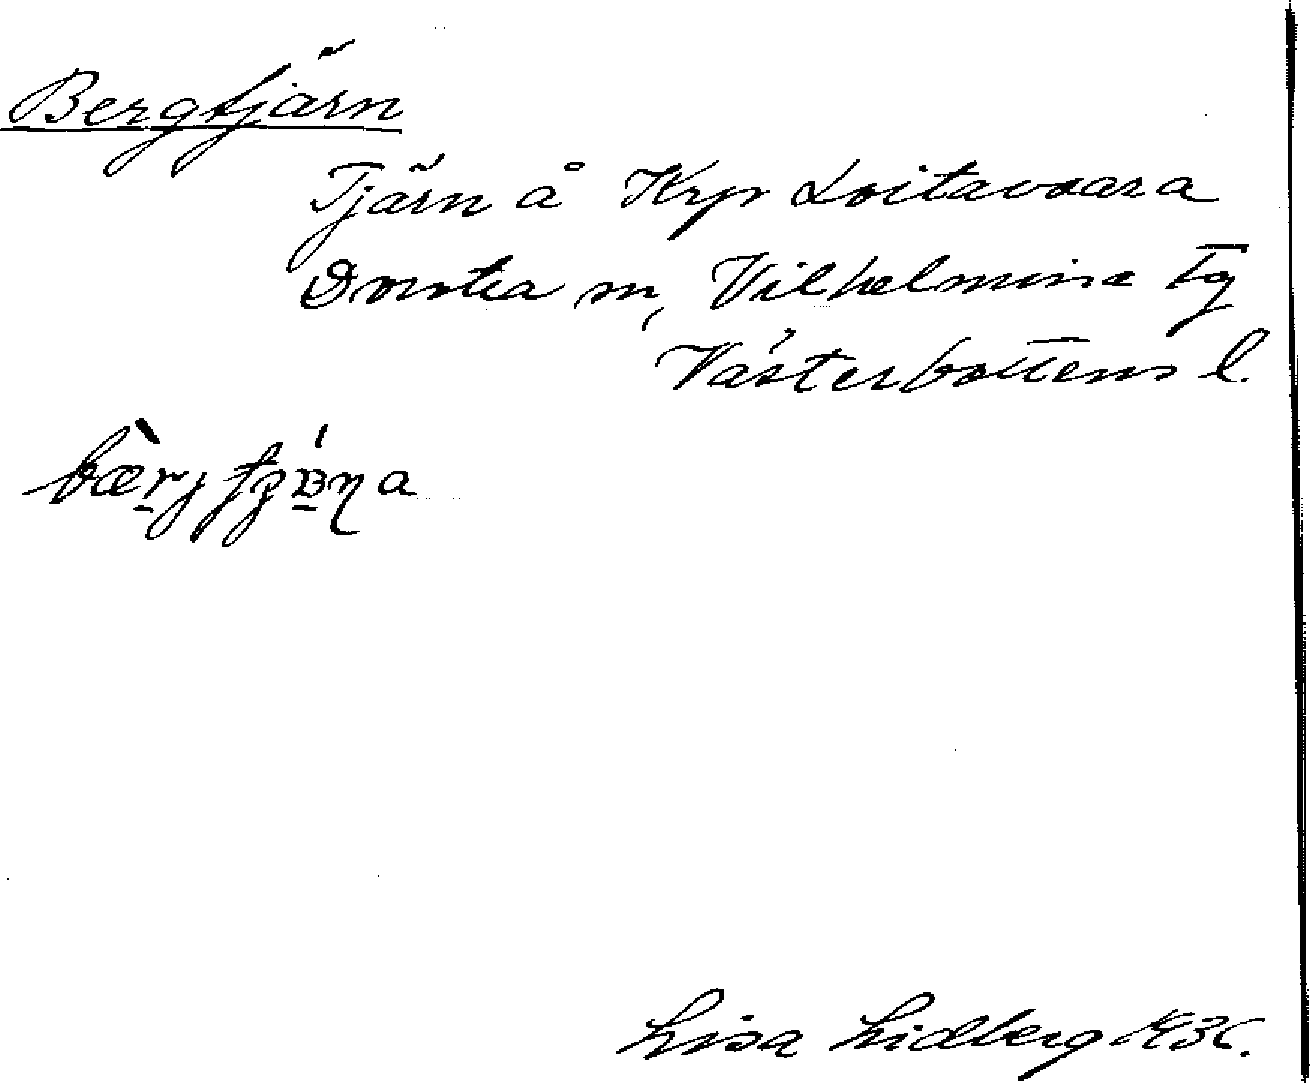 Bergtjärn
Tjärn å Krp Loitavaara
Dorotea sn, Vilhelmina tg
Västerbottens l.
Lisa Lidberg 1936.